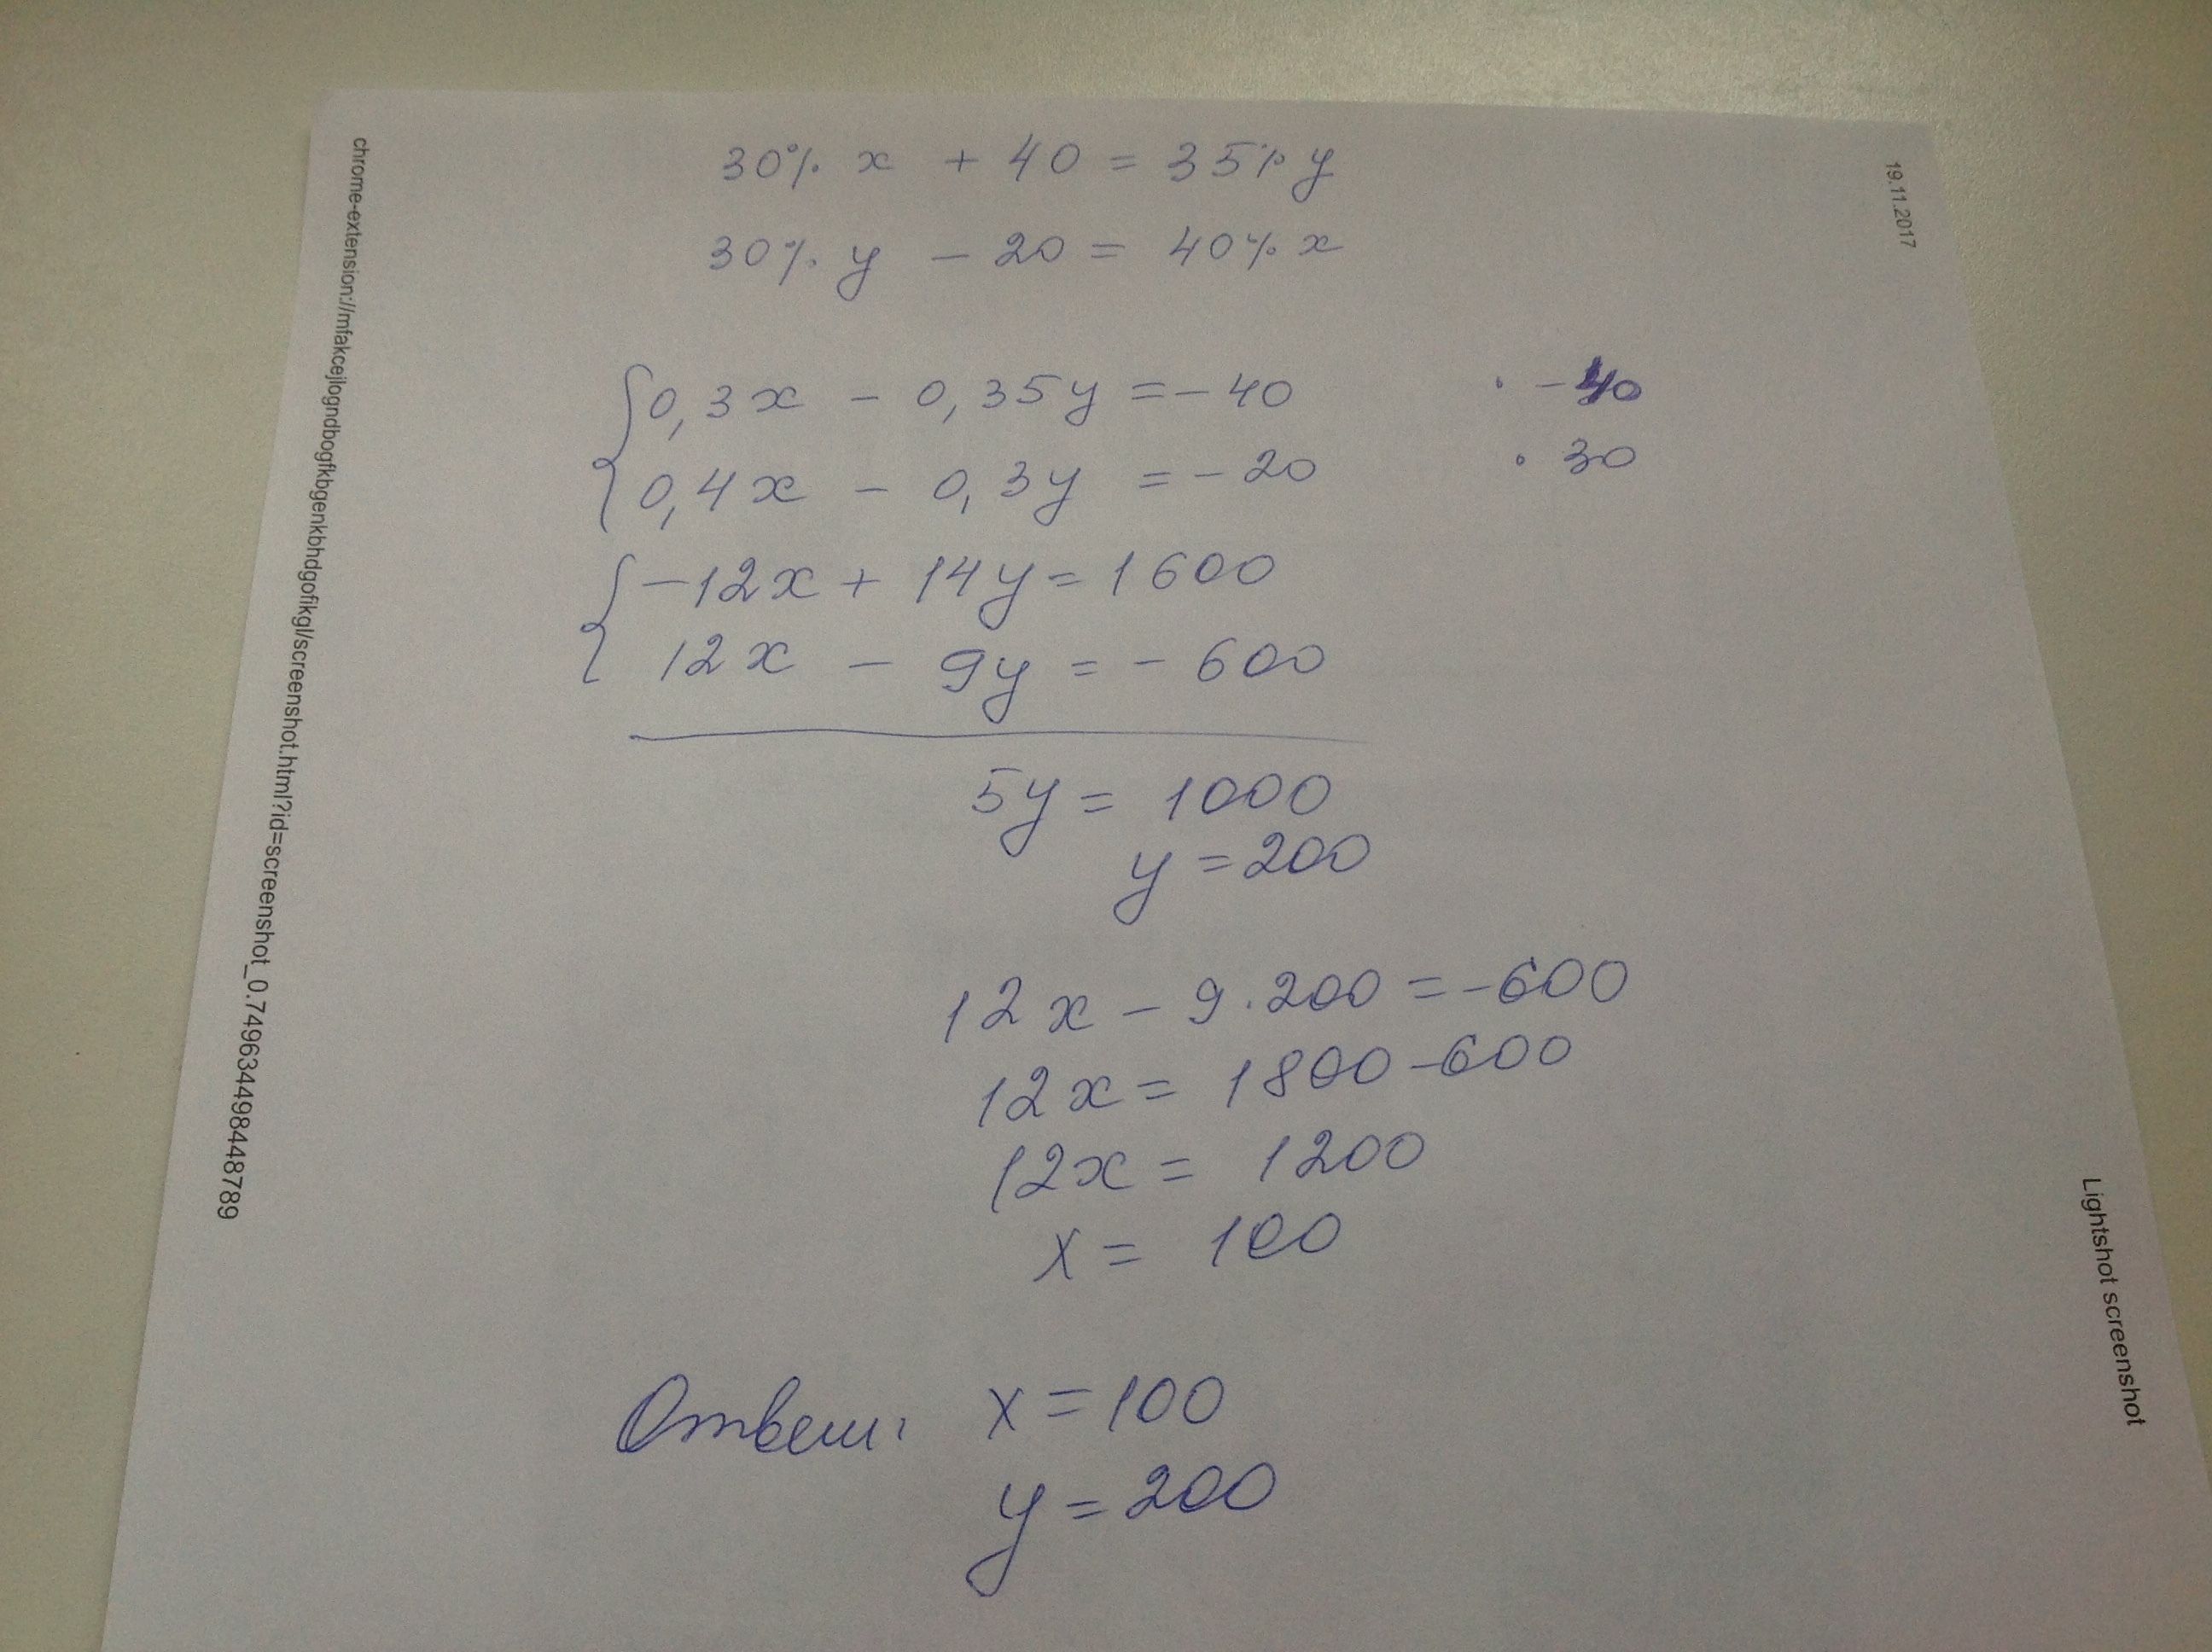 19.11.2017
chrome-extension://mfakcejlogndbogfkbgenkbhdgofikgl/screenshot.html?id=screenshot_0.7496344984448789
30% x + 40 = 35% y
30% y - 20 = 40% x
{0,3x - 0,35y = -40 · -40
{0,4x - 0,3y = -20 · 30
{-12x + 14y = 1600
{12x - 9y = -600
5y = 1000
y = 200
12x - 9·200 = -600
12x = 1800 - 600
12x = 1200
x = 100
Ответ: x = 100
y = 200
Lightshot screenshot